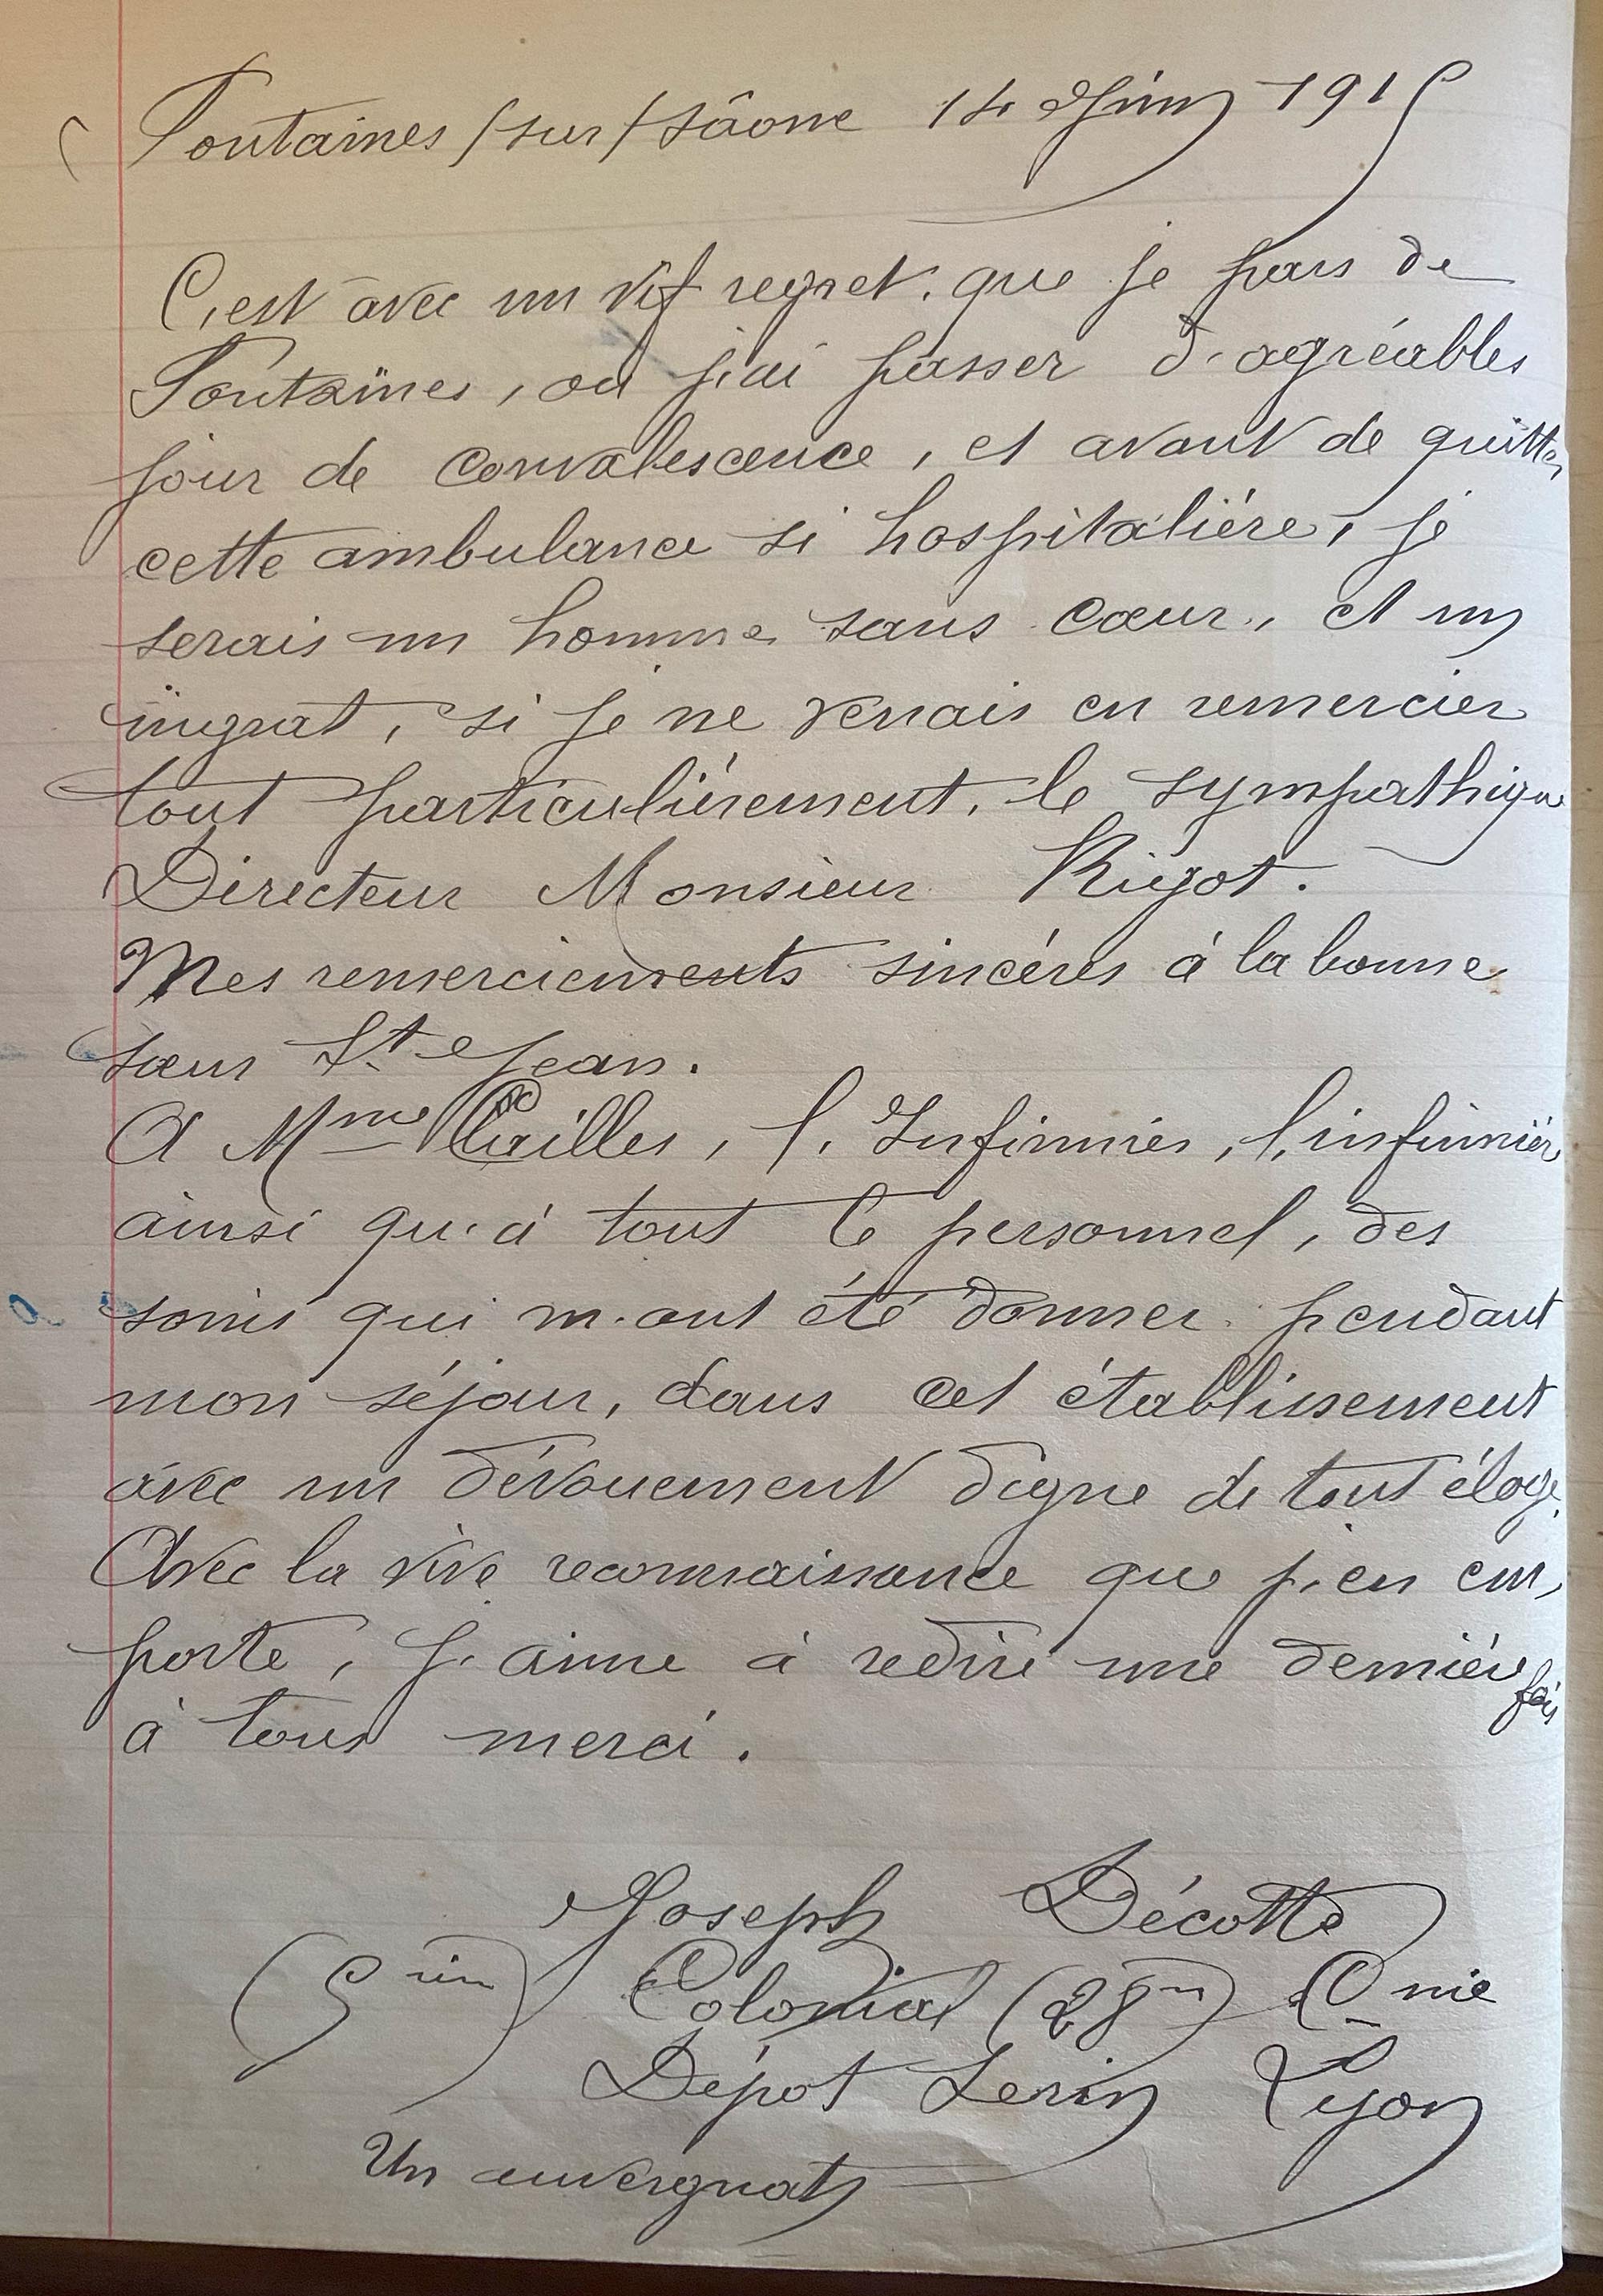 Fontaines /sur/ Sâone 14 Juin 1915
C'est avec un vif regret. que je pars de
Fontaines, où j'ai passer d'agréables
jour de convalescence, et avant de quitter
cette ambulance si hospitalière, je
serais un homme sans cœur, et un
ingrat, si je ne venais en remercier
tout particulièrement, le sympathique
Directeur Monsieur Rigot.
Mes remerciements sincères à la bonne
sœur St Jean.
A Mme Cailles, l'Infirmier, l'infirmière
ainsi qu'à tout le personnel, des
soins qui m'ont été donner pendant
mon séjour, dans cet établissement
avec un dévouement digne de tout éloge.
Avec la vive reconnaissance que j'en em,
porte, j'aime à redire une dernière fois
à tous merci.
Joseph Décotte
(5ième) Colonial (28me) Cnie
Dépot Serin Lyon
Un auvergnat